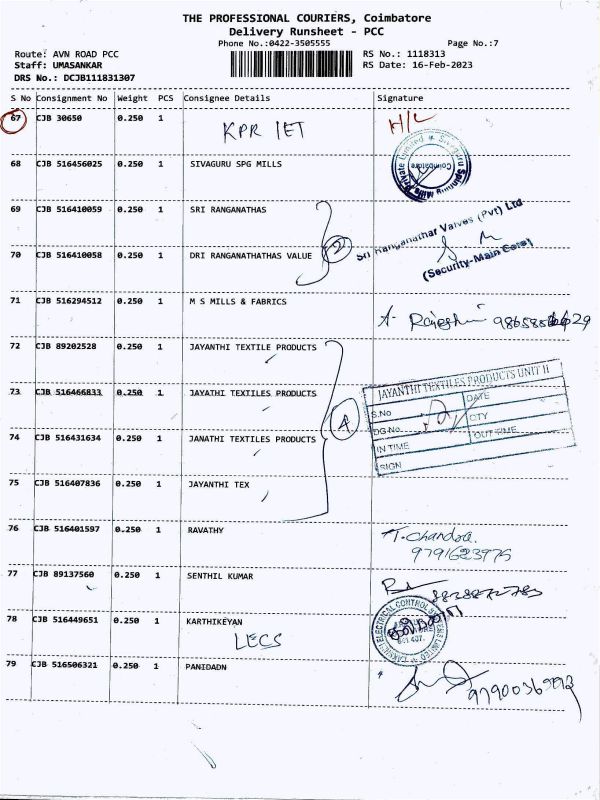 THE PROFESSIONAL COURIERS, Coimbatore
Delivery Runsheet - PCC
Phone No.:0422-3505555 Page No.:7
Route: AVN ROAD PCC RS No.: 1118313
Staff: UMASANKAR RS Date: 16-Feb-2023
DRS No.: DCJB111831307
S No Consignment No Weight PCS Consignee Details Signature
67 CJB 30650 0.250 1 KPR IET H/L
68 CJB 516456025 0.250 1 SIVAGURU SPG MILLS
69 CJB 516410059 0.250 1 SRI RANGANATHAS
Sri Ranganathar Valves (Pvt) Ltd
2
70 CJB 516410058 0.250 1 DRI RANGANATHATHAS VALUE
(Security-Main Gate)
71 CJB 516294512 0.250 1 M S MILLS & FABRICS
72 CJB 89202528 0.250 1 JAYANTHI TEXTILE PRODUCTS
73 CJB 516466833 0.250 1 JAYATHI TEXTILES PRODUCTS
JAYANTHI TEXTILES PRODUCTS UNIT II
S.No DATE
DG.No. CTY
IN TIME OUT TIME
SIGN
4
74 CJB 516431634 0.250 1 JANATHI TEXTILES PRODUCTS
75 CJB 516407836 0.250 1 JAYANTHI TEX
76 CJB 516401597 0.250 1 RAVATHY T. Chandra.
9791623975
77 CJB 89137560 0.250 1 SENTHIL KUMAR
78 CJB 516449651 0.250 1 KARTHIKEYAN
LECS
79 CJB 516506321 0.250 1 PANIDADN